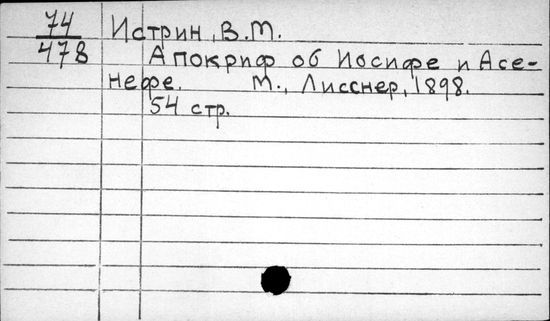 74
478
Истрин, В.М.
Апокриф об Иосифе и Асе-
нефе. М., Лисснер, 1898.
54 стр.